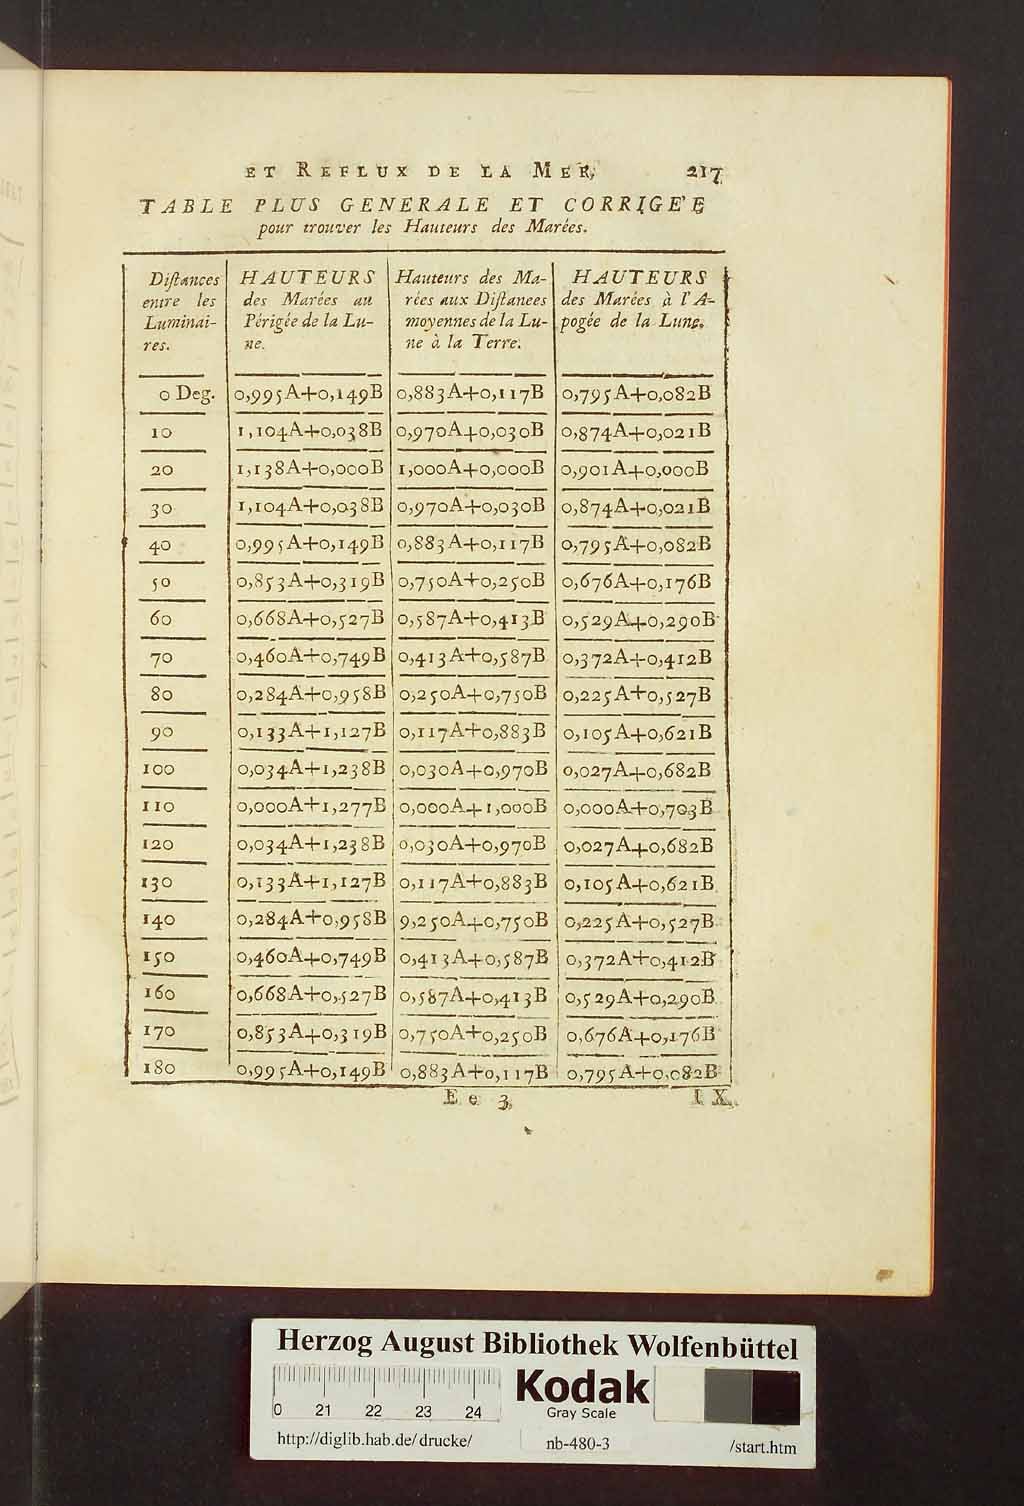 ET REFLUX DE LA MER, 217
TABLE PLUS GENERALE ET CORRIGE'E
pour trouver les Hauteurs des Marées.
Diſtances entre les Luminai-res. | HAUTEURS des Marées au Périgée de la Lu-ne. | Hauteurs des Ma-rées aux Diſtances moyennes de la Lu-ne à la Terre. | HAUTEURS des Marées à l'A-pogée de la Lune.
0 Deg. | 0,995A+0,149B | 0,883A+0,117B | 0,795A+0,082B
10 | 1,104A+0,038B | 0,970A+0,030B | 0,874A+0,021B
20 | 1,138A+0,000B | 1,000A+0,000B | 0,901A+0,000B
30 | 1,104A+0,038B | 0,970A+0,030B | 0,874A+0,021B
40 | 0,995A+0,149B | 0,883A+0,117B | 0,795A+0,082B
50 | 0,853A+0,319B | 0,750A+0,250B | 0,676A+0,176B
60 | 0,668A+0,527B | 0,587A+0,413B | 0,529A+0,290B
70 | 0,460A+0,749B | 0,413A+0,587B | 0,372A+0,412B
80 | 0,284A+0,958B | 0,250A+0,750B | 0,225A+0,527B
90 | 0,133A+1,127B | 0,117A+0,883B | 0,105A+0,621B
100 | 0,034A+1,238B | 0,030A+0,970B | 0,027A+0,682B
110 | 0,000A+1,277B | 0,000A+1,000B | 0,000A+0,703B
120 | 0,034A+1,238B | 0,030A+0,970B | 0,027A+0,682B
130 | 0,133A+1,127B | 0,117A+0,883B | 0,105A+0,621B
140 | 0,284A+0,958B | 9,250A+0,750B | 0,225A+0,527B
150 | 0,460A+0,749B | 0,413A+0,587B | 0,372A+0,412B
160 | 0,668A+0,527B | 0,587A+0,413B | 0,529A+0,290B
170 | 0,853A+0,319B | 0,750A+0,250B | 0,676A+0,176B
180 | 0,995A+0,149B | 0,883A+0,117B | 0,795A+0,082B
Ee 3 IX.
Herzog August Bibliothek Wolfenbüttel
0 21 22 23 24
Kodak
Gray Scale
http://diglib.hab.de/drucke/ nb-480-3 /start.htm